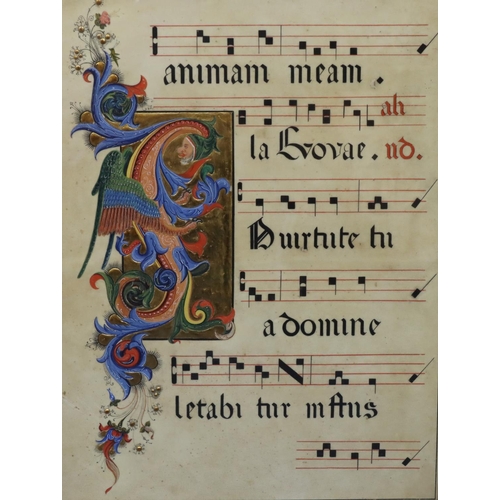 animam meam .
la Evovae . ud.
N uirtute tu
a domine
letabi tur iuſtus